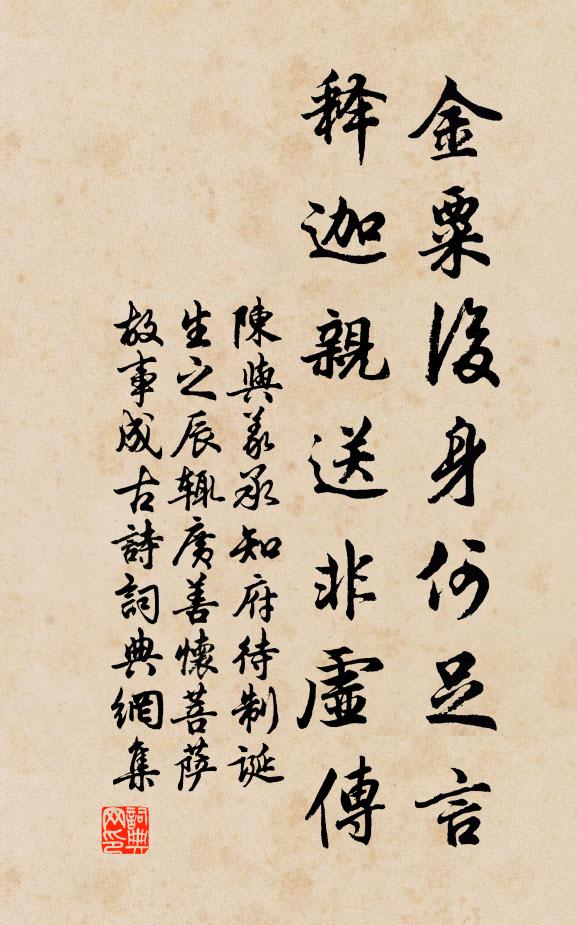 金粟後身何足言
釋迦親送非虛傳
陳與義承知府待制誕
生之辰輒廣善懷菩薩
故事成古詩詞典網集
詞典
网印